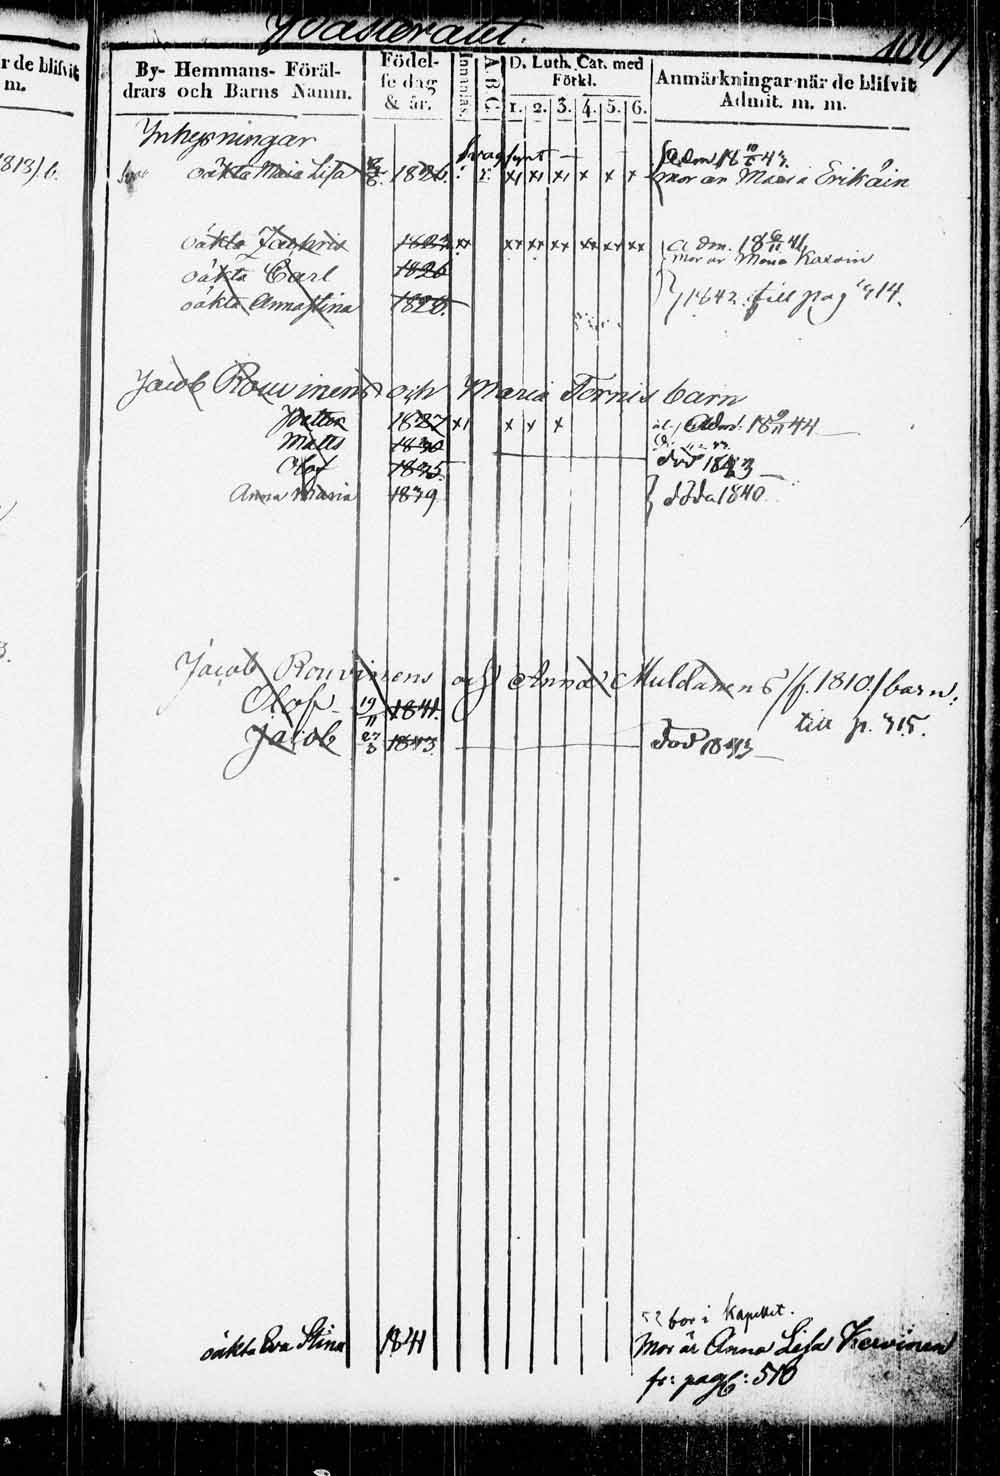 r de blifvit
m.
1813) b.
By- Hemmans- Föräl-
drars och Barns Namn.
Födel-
se dag
& år.
Innanläs.
A B C
D. Luth. Cat. med
Förkl.
1. 2. 3. 4. 5. 6.
Anmärkningar när de blifvit
Admit. m. m.
Ynhysningar
svagsynt — —
oäkta Maia Lisa 1826. x x x x x x
Adm 18 10/6 43.
mor är Maria Erikäin
oäkta Zachris 1823 xx xx xx xx xx xx xx
Adm. 18 41.
mor är Mena Karvin
oäkta Carl 1826
oäkta Anna Stina 1826.
1842 till pag 914.
Jacob Rouvinens och Maria Tornis barn
Petter 1827 x x x x
Adm. 18 44
Matts 1830
Olof 1835
död 1843
Anna Maria 1839.
döda 1840
Jacob Rouvinens och Anna Muldanens /f. 1810/ barn:
Olof 19/11 1841.
till p. 315.
Jacob 27/3 1843.
död 1843
bor i Kapellet.
oäkta Eva Stina 1841
Mor är Anna Lisa Kervinen
fr: pag: 510